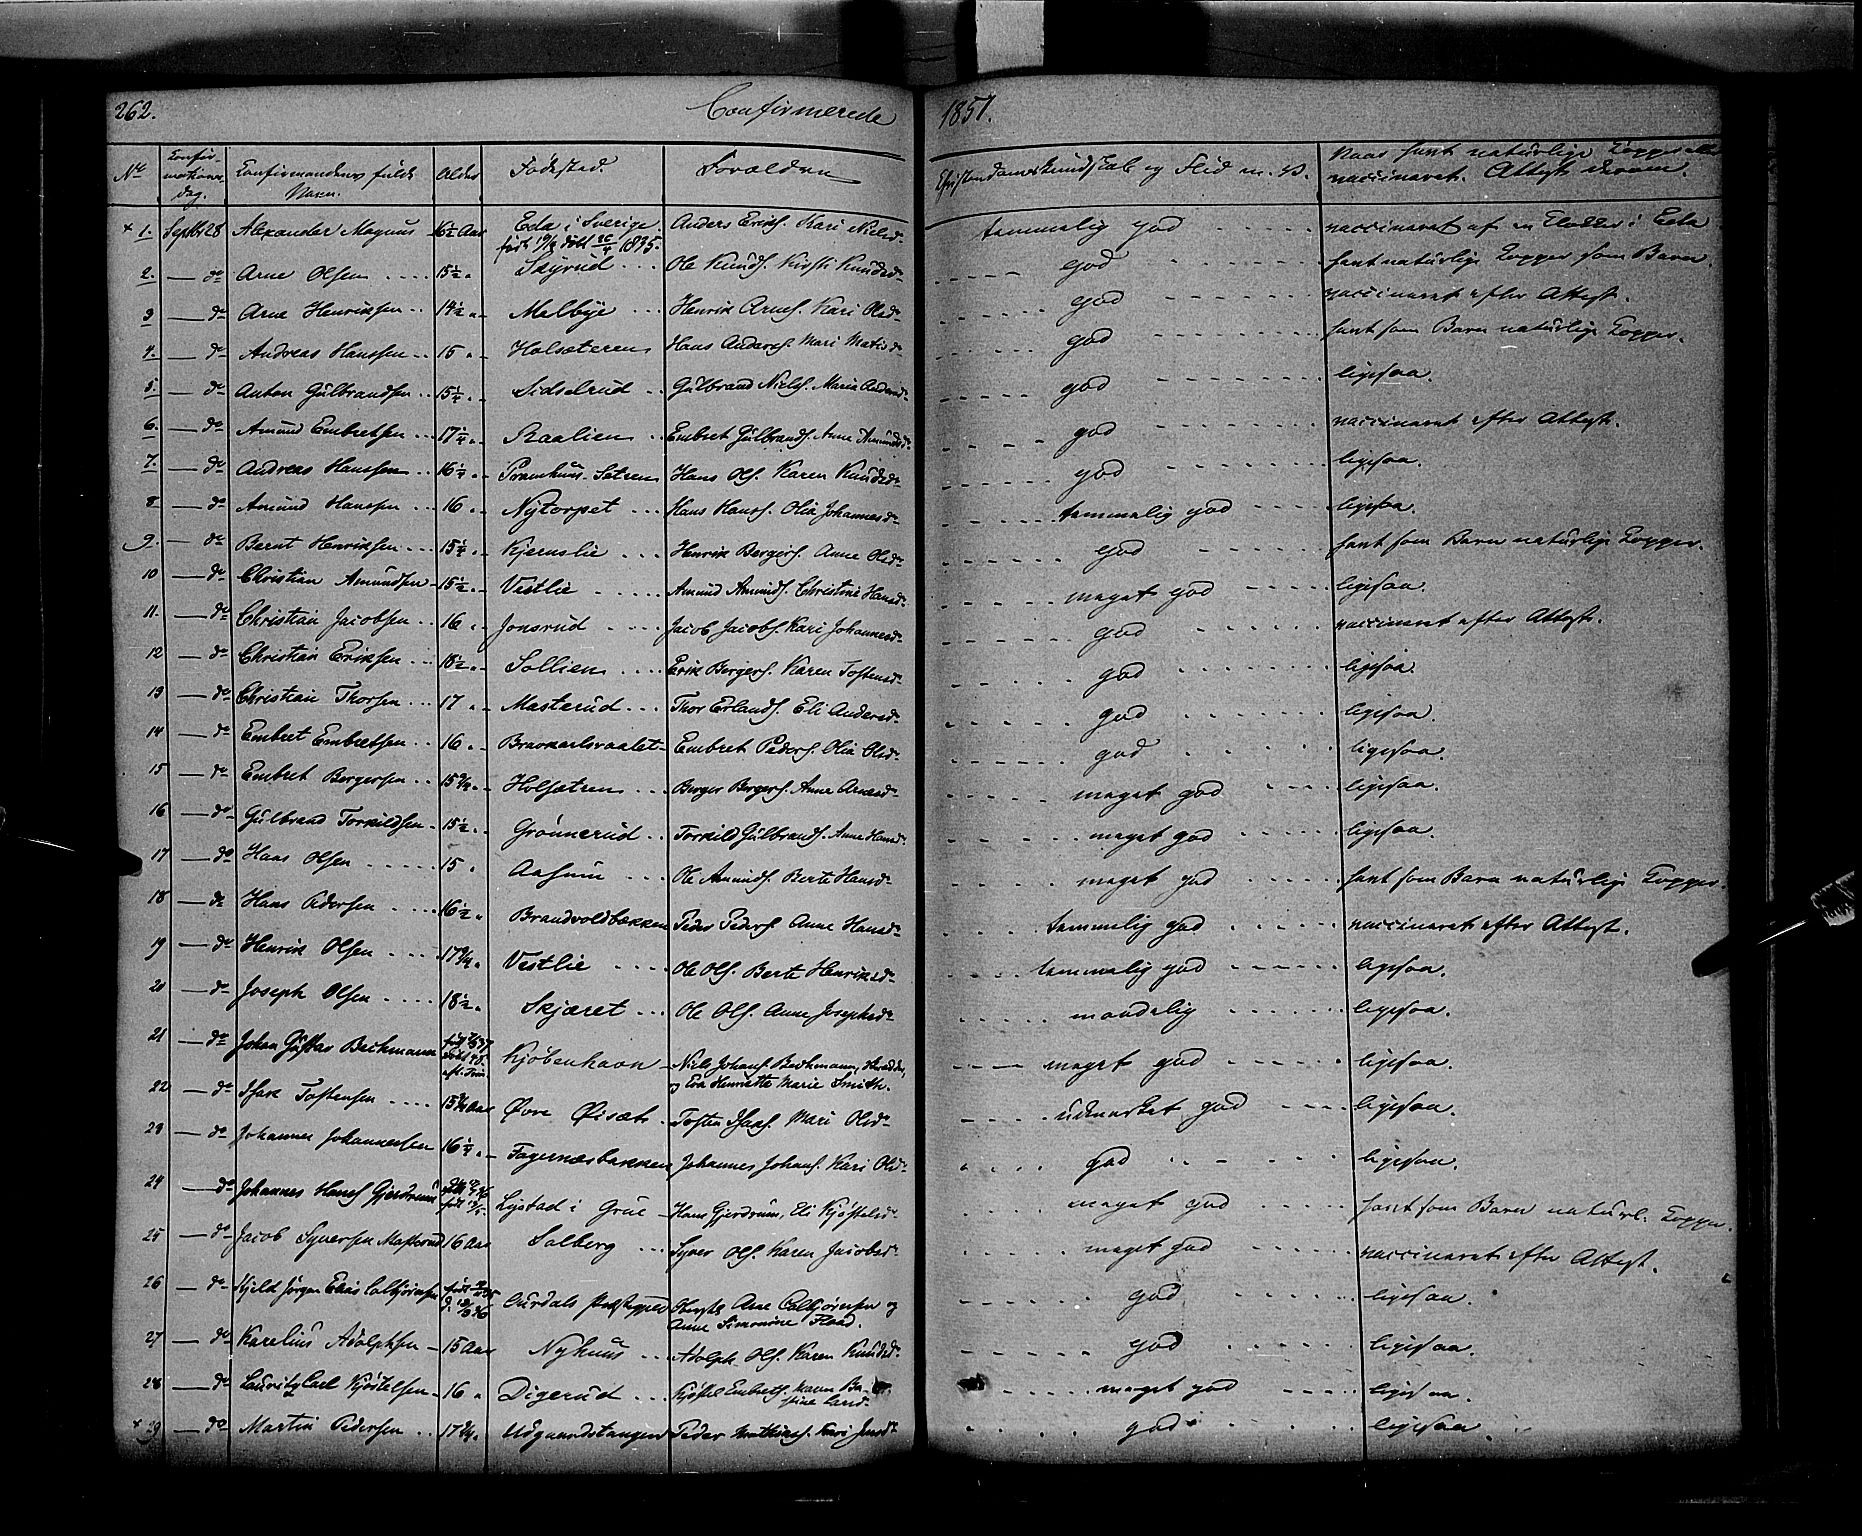 262. Confirmerede 1851.
No Confirmations dag. Confirmandens fulde Navn. Alder Fødested. Forældre Christendomskundskab og Flid m. v. Naar havt naturlige Kopper eller vaccineret. Attest derom.
+ 1. Septbr 28 Alexander Magnus 16½ Aar Eda i Sverige. Anders Eriks. Kari Nielsd. temmelig god vaccineret af en Klokker i Eda
født døbt 1835.
2. — do Arne Olsen 15½ " Skyrud Ole Knuds. Kirsti Knudsd. god havt naturlige Kopper som Barn.
3 — do Arne Henriksen 14½ " Melbye Henrik Arnes. Kari Olsd. god vaccineret efter Attest.
4. — do Andreas Hanssen 15 " Holsæteren Hans Anders. Mari Matisd. god havt som Barn naturlige Kopper.
5. — do Anton Gulbrandsen 15¼ " Sidselrud Gulbrand Niels. Maria Andersd. god ligesaa.
6. — do Amund Embretsen 17¼ " Raalien Embret Gulbrands. Anne Amundsd. god vaccineret efter Attest.
7. — do Andreas Hanssen 16¼ " Pramhuus-Setren Hans Ols. Karen Knudsd. god ligesaa.
8 — do Amund Hanssen 16 " Nytorpet Hans Hans. Olia Johannesd. temmelig god ligesaa.
9. — do Bernt Henriksen 15¼ " Kjernslie Henrik Bergers. Anne Olsd. god havt som Barn naturlige Kopper.
10 — do Christian Amundsen 15½ " Vestlie Amund Amunds. Christine Hansd. meget god ligesaa.
11. — do Christian Jacobsen 16 " Jonsrud Jacob Jacobs. Kari Johannesd. god vaccineret efter Attest.
12 — do Christian Eriksen 18½ " Sollien Erik Bergers. Karen Tostensd. god ligesaa.
13 — do Christian Thorsen 17 " Masterud Thor Erlands. Eli Andersd. god ligesaa.
14 — do Embret Embretsen 16 " Bravkarlsvaalet Embret Peders. Olia Olsd. god ligesaa
15 — do Embret Bergersen 15¾ " Holsætren Berger Bergers. Anne Arnesd. meget god ligesaa.
16 — do Gulbrand Torkildsen 15½ " Grønnerud Torkild Gulbrands. Anne Hansd. meget god ligesaa.
17 — do Hans Olsen 15 " Aasum Ole Amunds. Berte Hansd. meget god havt som Barn naturlige Kopper.
18 — do Hans Pedersen 16½ " Brandvoldbækken Peder Peders. Anne Hansd. temmelig god vaccineret efter Attest.
19 — do Henrik Olsen 17¾ " Vestlie Ole Ols. Berte Henriksd. temmelig god ligesaa.
20 — do Joseph Olsen 18½ " Skjæret Ole Ols. Anne Josephsd. maadelig ligesaa.
21 — do Johan Gustav Beckmann født 37 Kjøbenhavn Niels Johans. Beckmann,
og Eva Henriette Marie Smith. meget god ligesaa.
22 — do Isak Tostensen 15¾ Aar Øvre Øisæt Tosten Isaks. Mari Olsd. udmærket god ligesaa.
23 — do Johannes Johannessen 16¼ " Fagernæsbakken Johannes Johans. Kari Olsd. god ligesaa.
24 — do Johannes Hans. Gjerdrum Lystad i Grue Hans Gjerdrum, Eli Kjøstelsd. meget god havt som Barn naturl. Kopper.
25 — do Jacob Syversen Masterud 16 Aar Solberg Syver Ols. Karen Jacobsd. meget god vaccineret efter Attest.
26 — do Kjeld Jørgen Elias Colbjørnsen født Aurdals Præstegjeld Arne Colbjørnsen og
Anne Simonine Flood. god ligesaa.
27 — do Karelius Adolphsen 15 Aar Nyhuus Adolph Ols. Karen Knudsd. god ligesaa.
28 — do Lauritz Carl Kjøstelsen 16 " Digerud Kjøstel Embrets. Karen
meget god ligesaa.
+ 29 — do Martin Pedersen 17¾ " Udgaardstangen Peder Mathias. Kari Jensd. god ligesaa.